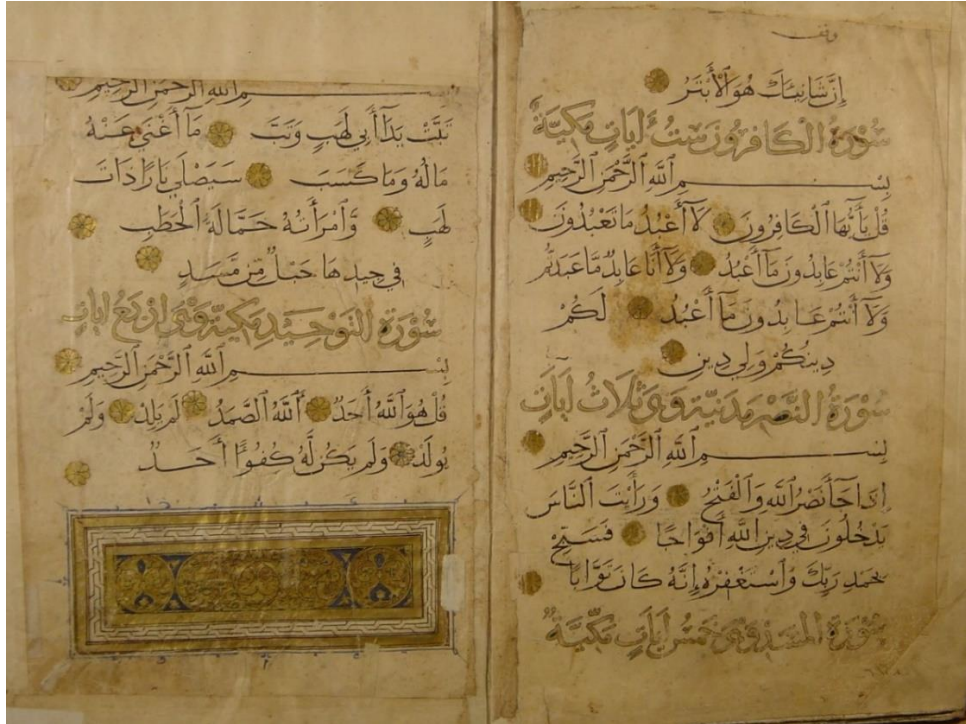 وقف
إِنَّ شَانِيئَكَ هُوَ الْأَبْتَرُ
سُورَةُ الْكَافِرُونَ سِتُّ آيَاتٍ مَكِّيَّةٌ
بِسْمِ اللَّهِ الرَّحْمَٰنِ الرَّحِيمِ
قُلْ يَا أَيُّهَا الْكَافِرُونَ لَا أَعْبُدُ مَا تَعْبُدُونَ
وَلَا أَنْتُمْ عَابِدُونَ مَا أَعْبُدُ وَلَا أَنَا عَابِدٌ مَّا عَبَدتُّمْ
وَلَا أَنْتُمْ عَابِدُونَ مَا أَعْبُدُ لَكُمْ
دِينُكُمْ وَلِيَ دِينِ
سُورَةُ النَّصْرِ مَدَنِيَّةٌ وَهِيَ ثَلَاثُ آيَاتٍ
بِسْمِ اللَّهِ الرَّحْمَٰنِ الرَّحِيمِ
إِذَا جَآءَ نَصْرُ اللَّهِ وَالْفَتْحُ وَرَأَيْتَ النَّاسَ
يَدْخُلُونَ فِي دِينِ اللَّهِ أَفْوَاجًا فَسَبِّحْ
بِحَمْدِ رَبِّكَ وَاسْتَغْفِرْهُ إِنَّهُ كَانَ تَوَّابًا
سُورَةُ الْمَسَدِ وَهِيَ خَمْسُ آيَاتٍ مَكِّيَّةٌ
بِسْمِ اللَّهِ الرَّحْمَٰنِ الرَّحِيمِ
تَبَّتْ يَدَآ أَبِي لَهَبٍ وَتَبَّ مَآ أَغْنَىٰ عَنْهُ
مَالُهُ وَمَا كَسَبَ سَيَصْلَىٰ نَارًا ذَاتَ
لَهَبٍ وَّامْرَأَتُهُ حَمَّالَةَ الْحَطَبِ
فِي جِيدِهَا حَبْلٌ مِّن مَّسَدٍ
سُورَةُ التَّوْحِيدِ مَكِّيَّةٌ وَهِيَ أَرْبَعُ آيَاتٍ
بِسْمِ اللَّهِ الرَّحْمَٰنِ الرَّحِيمِ
قُلْ هُوَ اللَّهُ أَحَدٌ اللَّهُ الصَّمَدُ لَمْ يَلِدْ وَلَمْ
يُولَدْ وَلَمْ يَكُن لَّهُ كُفُوًا أَحَدٌ